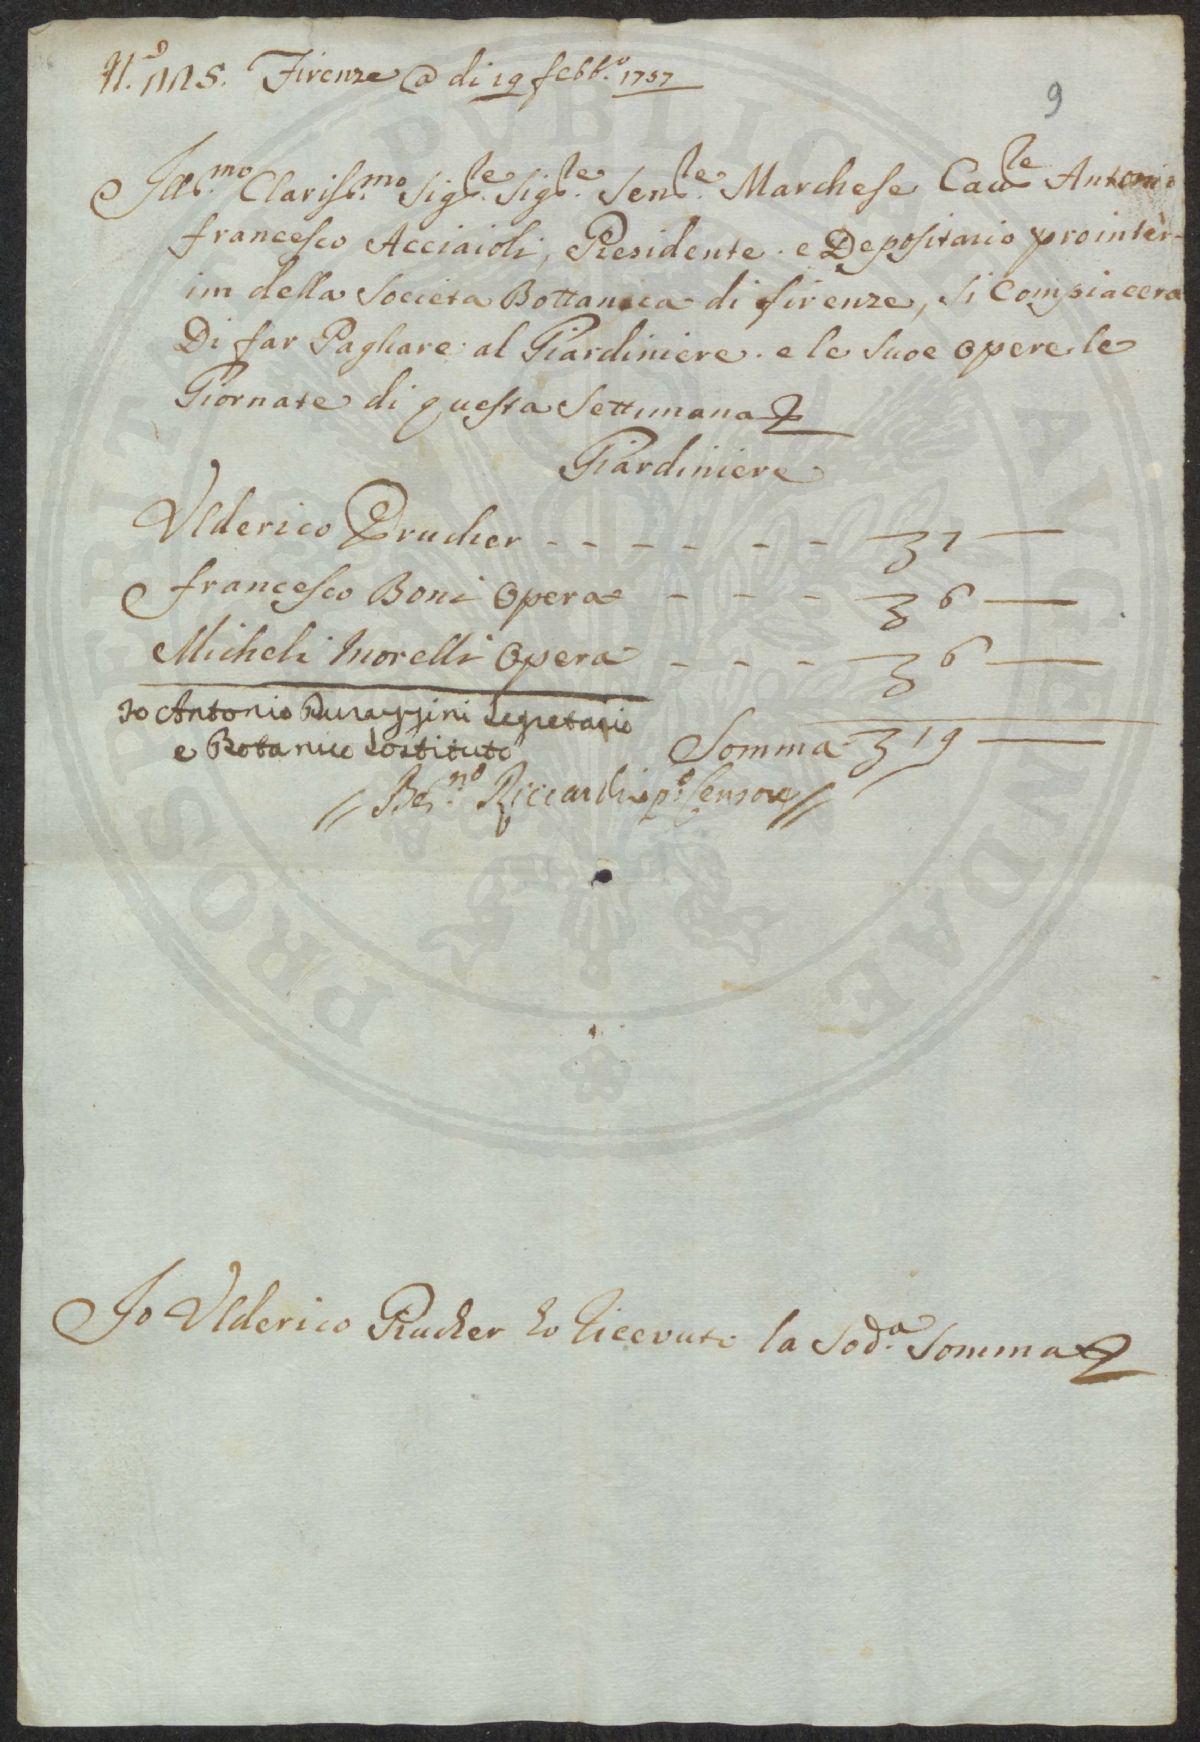 Firenze @ di 19 febb.º 1757
9
Ill.mo Clariss.mo Sig.re Sig.re Sen.re Marchese Cau.re Antonio
francesco Acciaioli, Presidente e Depositario prointer-
im della Societa Bottanica di firenze, si Compiacera
Di far Paghare al Giardiniere e le sue opere le
Giornate di questa Settimana
Giardiniere
Vlderico Prucher - - - - - - 7 —
francesco Boni Opera - - - 6 —
Micheli Morelli Opera - - - 6 —
Io Antonio Durazzini Segretario
e Botanico Sostituto
Somma 19 —
Be.no Riccardi p.º Censore
Io Vlderico Prucher ho riceuuto la sod.a Somma
PVBLICAE AVGENDAE PROSPERITATI